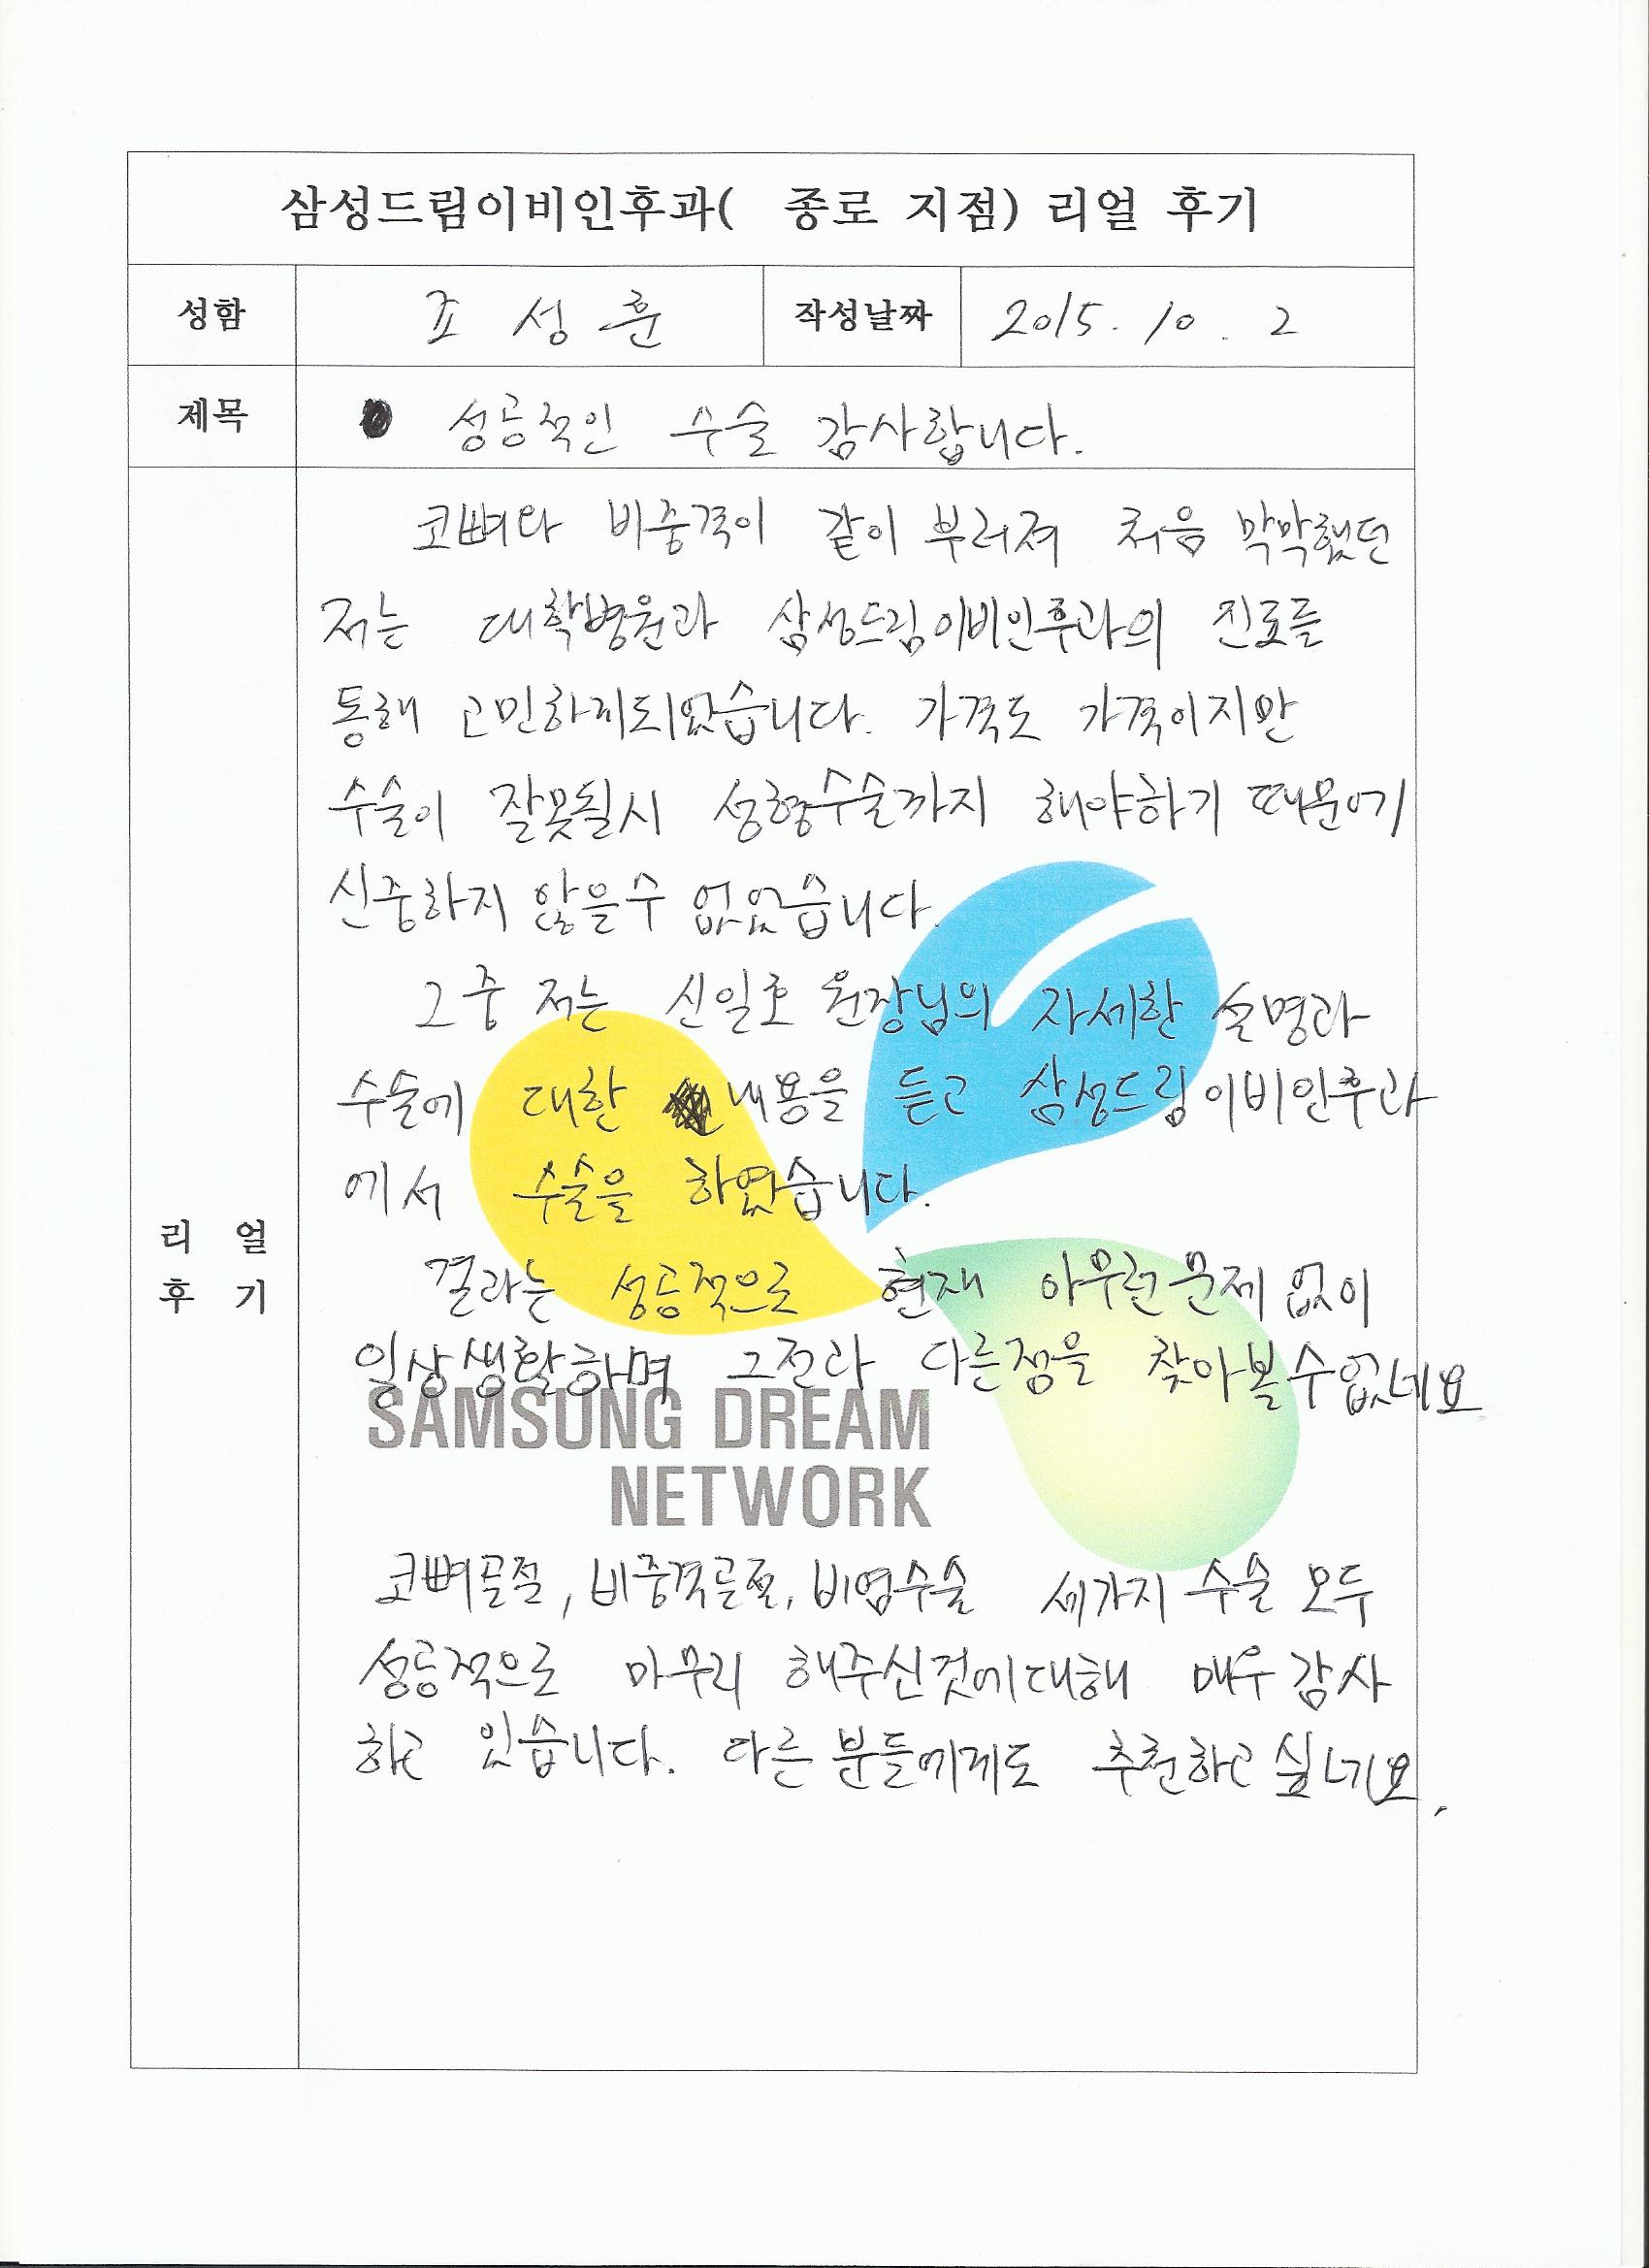 삼성드림이비인후과( 종로 지점) 리얼 후기
성함 조 성 훈 작성날짜 2015. 10. 2
제목 성공적인 수술 감사합니다.
코뼈와 비중격이 같이 부러져 처음 막막했던
저는 대학병원과 삼성드림이비인후과의 진료를
통해 고민하게되었습니다. 가격도 가격이지만
수술이 잘못될시 성형수술까지 해야하기 때문에
신중하지 않을수 없었습니다.
그중 저는 신일호 원장님의 자세한 설명과
수술에 대한 내용을 듣고 삼성드림이비인후과
에서 수술을 하였습니다.
리 얼
후 기
결과는 성공적으로 현재 아무런문제없이
일상생활하며 그전과 다른점을 찾아볼수없네요
SAMSUNG DREAM
NETWORK
코뼈골절, 비중격골절, 비염수술 세가지 수술 모두
성공적으로 마무리 해주신것에대해 매우 감사
하고 있습니다. 다른분들에게도 추천하고싶네요.